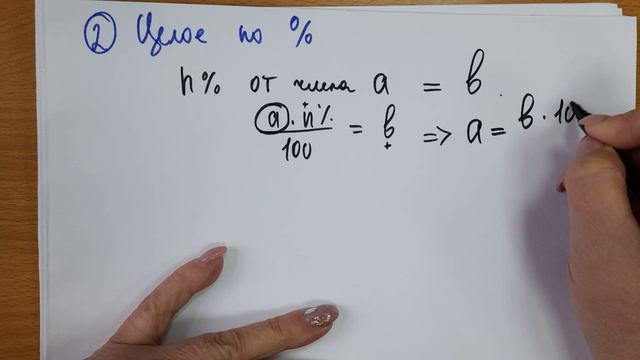 ② Целое по %
n% от числа a = b
a · n% / 100 = b => a = b · 10